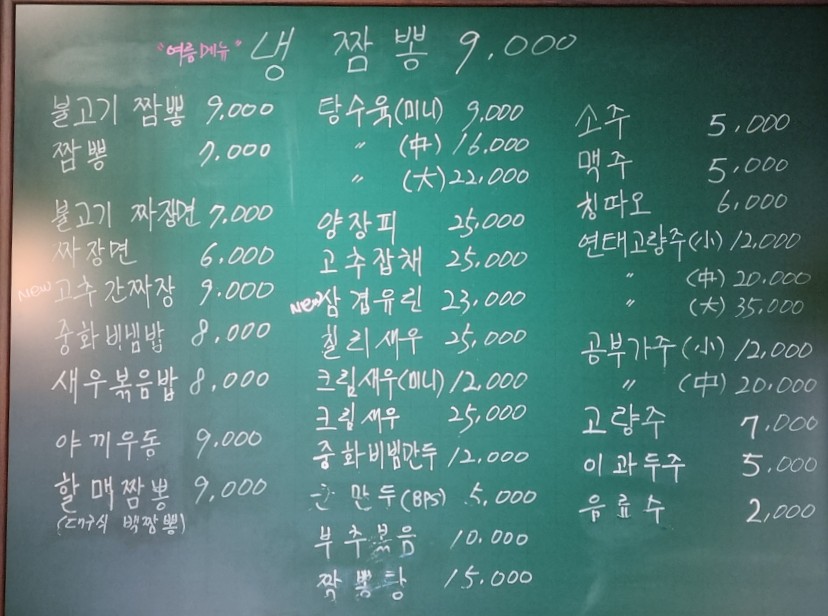 "여름메뉴" 냉 짬뽕 9,000
불고기 짬뽕 9,000
짬뽕 7,000
불고기 짜장면 7,000
짜장면 6,000
New 고추 간짜장 9,000
중화 비빔밥 8,000
새우볶음밥 8,000
야끼우동 9,000
할매짬뽕 9,000
(대구식 백짬뽕)
탕수육(미니) 9,000
〃 (中) 16,000
〃 (大) 22,000
양장피 25,000
고추잡채 25,000
New 삼겹유린 23,000
칠리새우 25,000
크림새우(미니) 12,000
크림새우 25,000
중화비빔만두 12,000
군만두(8PS) 5,000
부추볶음 10,000
짬뽕탕 15,000
소주 5,000
맥주 5,000
칭따오 6,000
연태고량주(小) 12,000
〃 (中) 20,000
〃 (大) 35,000
공부가주(小) 12,000
〃 (中) 20,000
고량주 7,000
이과두주 5,000
음료수 2,000